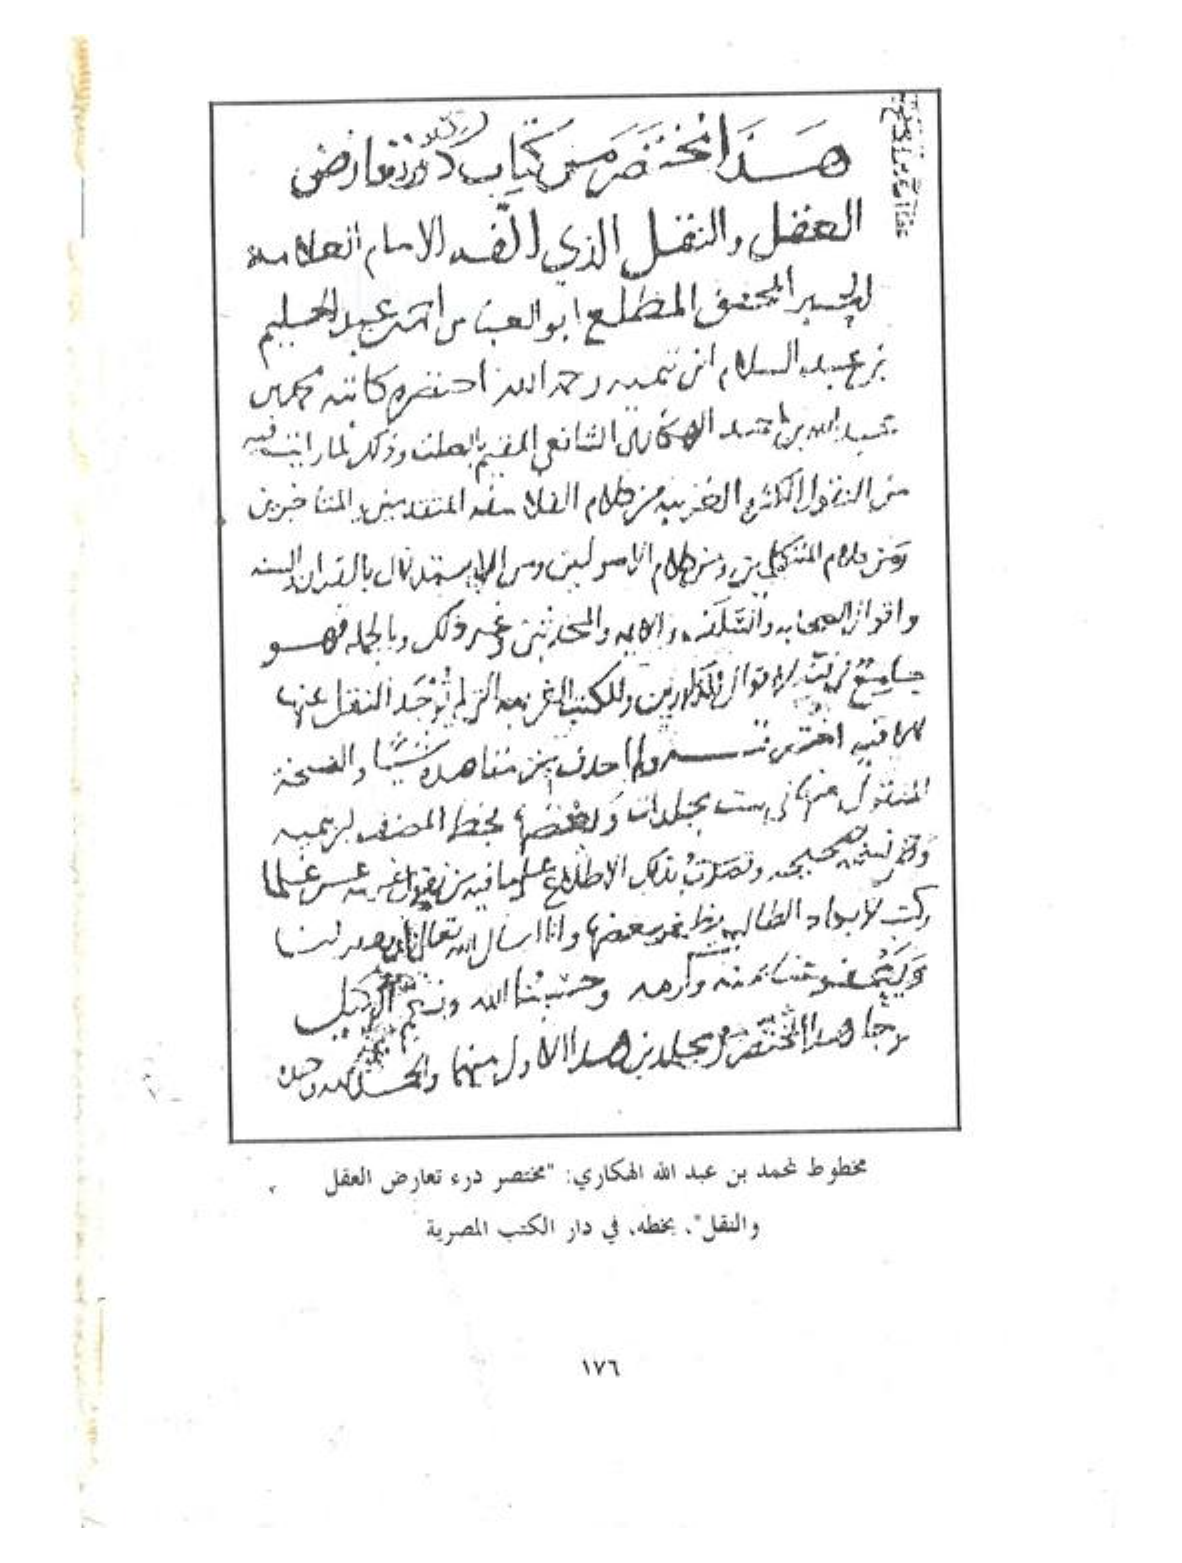 هَذَا مُخْتَصَر مِن كِتَاب درء تعارض
العقل والنقل الذي الّفه الامام العلامة
المحقق المطلع ابو العباس احمد بن عبد الحليم
بن عبد السلام ابن تيميه رحمه الله اختصره كاتبه محمد بن
عبد الله بن احمد الهكاري الشافعي المقيم بالصلت وذلك لما رايت فيه
من النقول الكثيره الغريبه من كلام الفلاسفه المتقدمين والمتاخرين
ومن كلام المتكلمين ومن كلام الاصوليين ومن الاستدلال بالقران والسنه
واقوال الصحابه والسَّلَف والايمه والمحدثين وغير ذلك وبالجمله فهو
جامع المذكورين وللكتب الغريبه التي لم يُوْجَد النقل عنها
الا فيه ولم احذف من مقاصده شَيْئًا والنسخة
المنقول منها في ست مجلدات وبعْضها بخط المصنف ابن تيميه
وهي نسخه صحيحه وقصدتُ بذلك الاطلاع على ما فيه من نقول
الطالب يظفر ببعضها وانا اسال الله تعالى ان
وَيَعْفو عنا بمنه وكرمه وحسْبُنا الله ونعم الوكيل
وجا هذا المُخْتَصر في مجلدين هذا الاول منهما والحمد لله وحده
مخطوط محمد بن عبد الله الهكاري: "مختصر درء تعارض العقل
والنقل"، بخطه، في دار الكتب المصرية
١٧٦